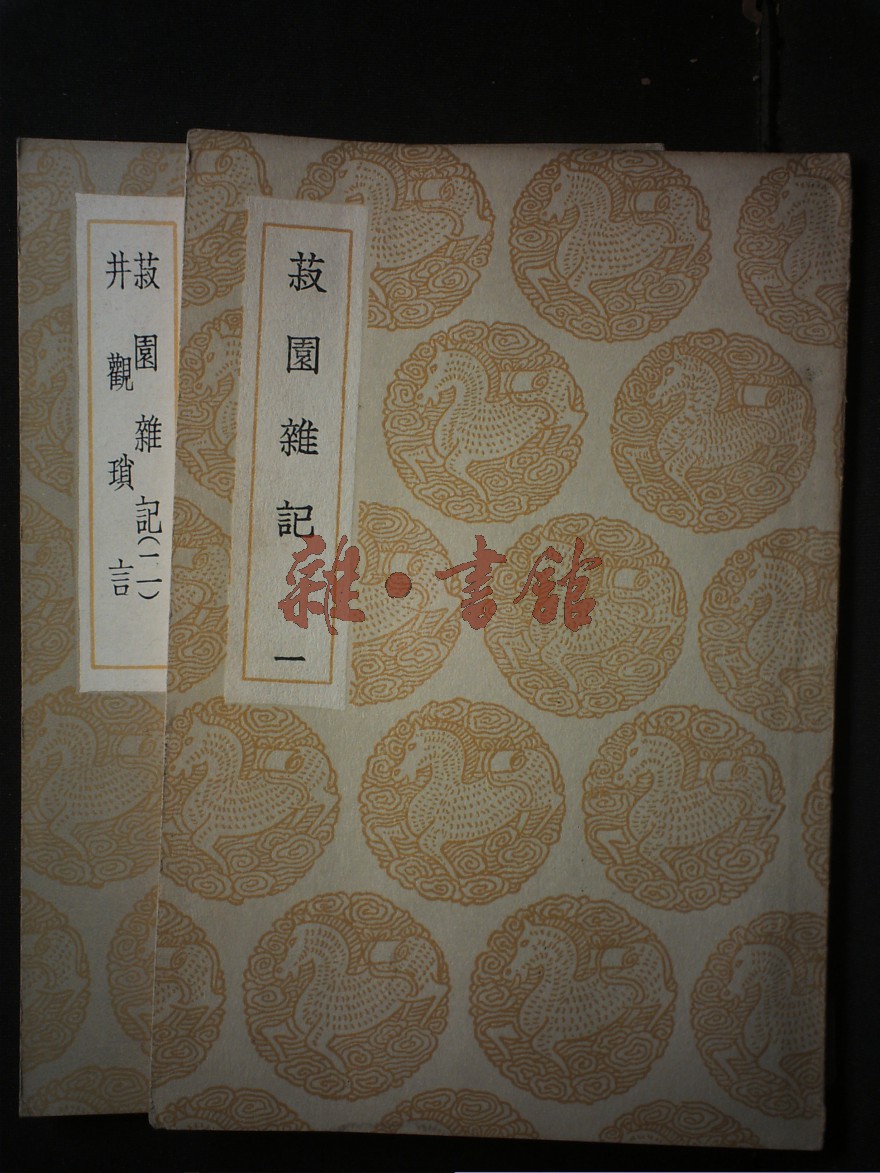 菽園雜記
一
菽園雜記(二)
井觀瑣言
雜·書館